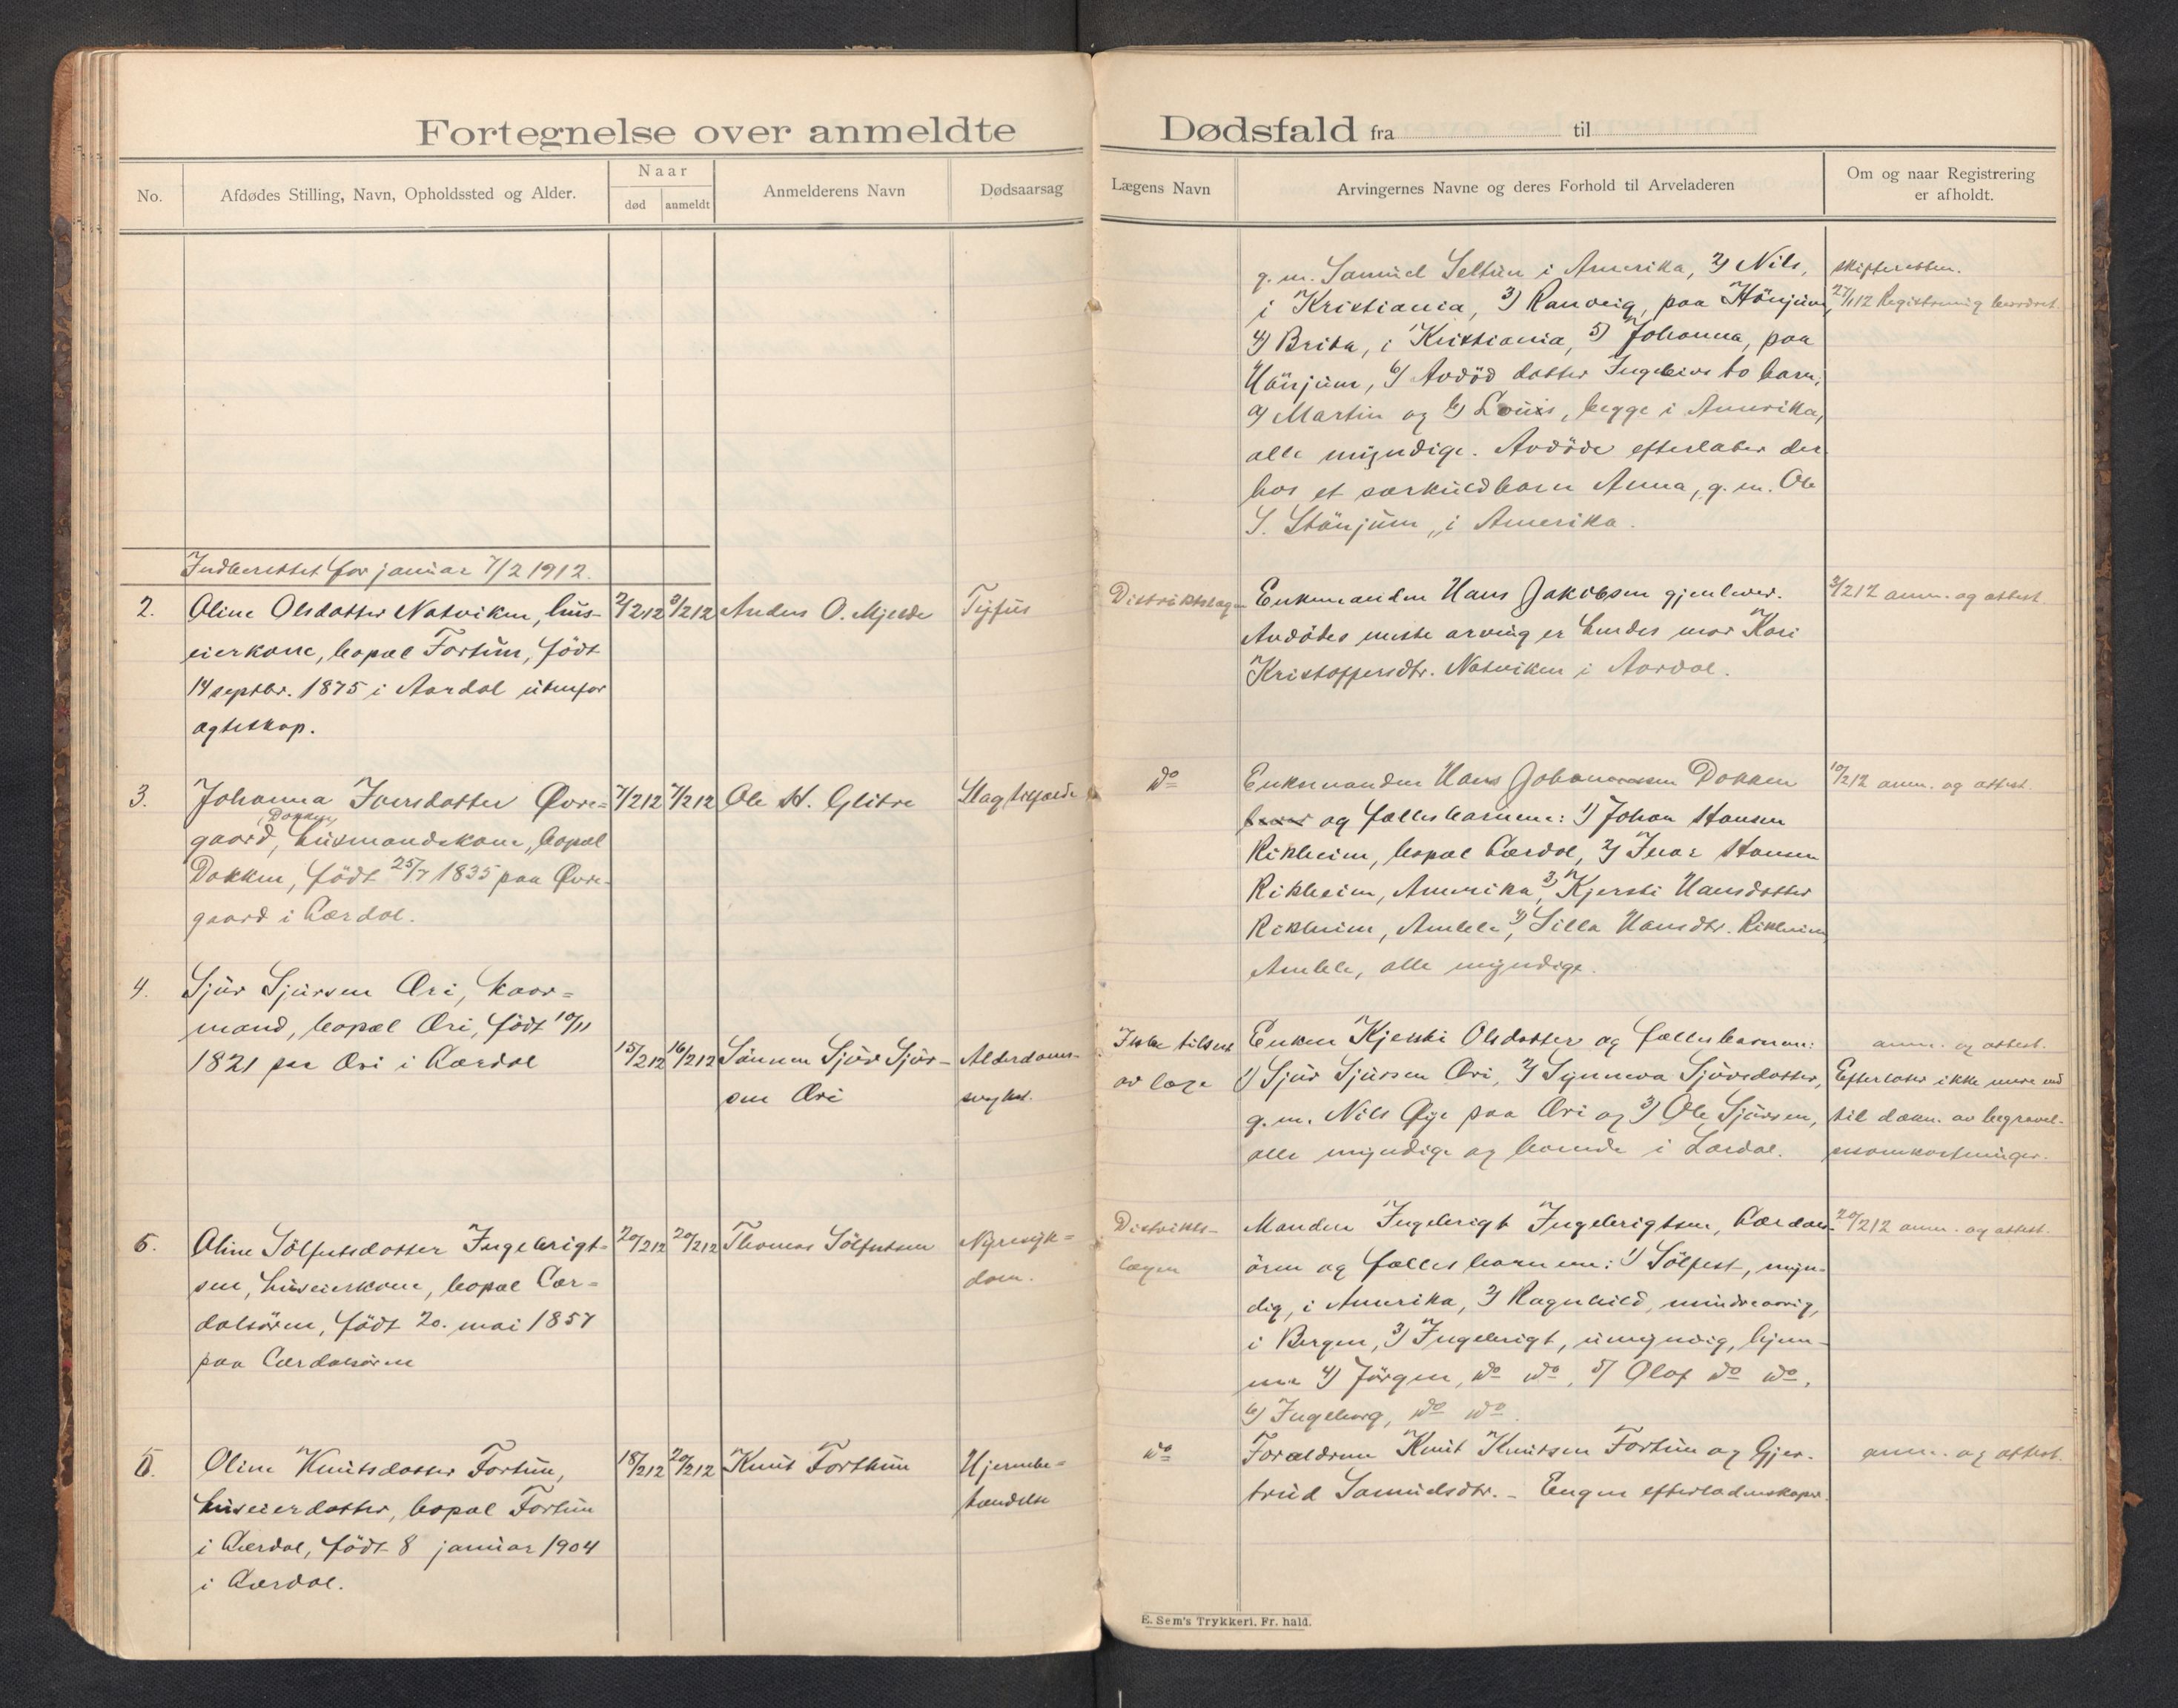 Fortegnelse over anmeldte
Dødsfald fra til
No.
Afdødes Stilling, Navn, Opholdssted og Alder.
Naar
død
anmeldt
Anmelderens Navn
Dødsaarsag
Lægens Navn
Arvingernes Navne og deres Forhold til Arveladeren
Om og naar Registrering
er afholdt.
g. m. Samuel Seltun i Amerika, 2) Nils,
i Kristiania, 3) Ranveig, paa Hönjum,
4) Brita, i Kristiania, 5) Johanna, paa
Hönjum, 6) Avdöd datter Ingebivs to barn:
a) Martin og b) Louis, begge i Amerika,
alle myndige. Avdöde efterlater der
hos et særkuldbarn Anna, g. m. Ole
S. Stönjum, i Amerika.
skifteretten.
27/1 12 Registrering beordret.
Indberettet for januar 7/2 1912.
2.
Oline Olsdatter Natviken, hus-
eierkone, bopæl Fortun, födt
14 septbr. 1875 i Aardal utenfor
ægteskap.
2/2 12
3/2 12
Anders O. Mjelde
Tyfus
Distriktslægen
Enkemanden Hans Jakobsen gjenlever.
Avdödes næste arving er hendes mor Kari
Kristoffersdtr. Natviken i Aardal.
3/2 12 anm. og attest.
3.
Johanna Iversdatter Øvre-
gaard, Dokken, husmandskone, bopæl
Dokken, födt 25/7 1835 paa Øvre-
gaard i Lærdal.
7/2 12
7/2 12
Ole H. Glitre
Slagtilfælde
do
Enkemanden Hans Johannessen Dokken
og fællesbarnene: 1) Johan Hansen
Rikheim, bopæl Lærdal, 2) Ivar Hansen
Rikheim, Amerika, 3) Kjersti Hansdatter
Rikheim, Amble, 4) Silla Hansdtr. Rikheim,
Amble, alle myndige.
10/2 12 anm. og attest.
4.
Sjur Sjursen Øri, kaar-
mand, bopæl Øri, födt 10/11
1821 paa Øri i Lærdal
15/2 12
16/2 12
Sönnen Sjur Sjur-
sen Øri
Alderdoms-
svakhet.
Ikke tilset
av læge
Enken Kjersti Olsdatter og fællesbarnene:
1) Sjur Sjursen Øri, 2) Synneva Sjursdatter,
g. m. Nils Øye paa Øri og 3) Ole Sjursen,
alle myndige og boende i Lærdal.
anm. og attest.
Efterlater ikke mere end
til dækn. av begravel-
sesomkostninger.
5.
Oline Sölfestsdatter Ingebrigt-
sen, huseierkone, bopæl Lær-
dalsören, födt 20. mai 1857
paa Lærdalsören
20/2 12
20/2 12
Thomas Sölfestsen
Nyresyk-
dom.
Distrikts-
lægen
Manden Ingebrigt Ingebrigtsen, Lærdals-
ören og fællesbarnene: 1) Sölfest, myn-
dig, i Amerika, 2) Ragnhild, mindreaarig,
i Bergen, 3) Ingebrigt, umyndig, hjem-
me 4) Jörgen, do do, 5) Olaf do do,
6) Ingeborg, do do.
20/2 12 anm. og attest.
6.
Oline Knutsdatter Fortun,
huseierdatter, bopæl Fortun
i Lærdal, födt 8 januar 1904
i Lærdal.
18/2 12
20/2 12
Knut Forthun
Hjernebe-
tændelse
do
Forældrene Knut Knutsen Fortun og Gjer-
trud Samuelsdtr. - Ingen efterladenskaper.
anm. og attest.
E. Sem's Trykkeri, Fr. hald.